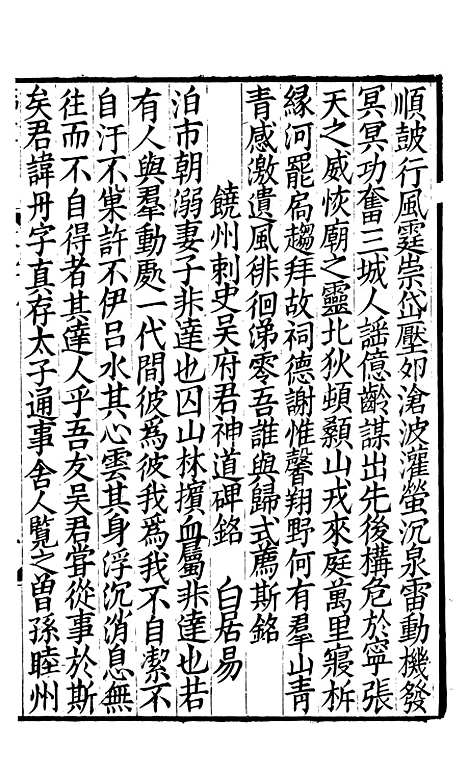 順鼓行風霆崇岱壓卵滄波灌螢沉泉雷動機發
冥冥功奮三城人謡億齡謀出先後構危於寧張
天之威恢廟之靈北狄頓顙山戎來庭萬里寢柝
緣河罷扃趨拜故祠德謝惟馨翔野何有羣山青
青感激遺風徘徊涕零吾誰與歸式薦斯銘
饒州刺史吴府君神道碑銘 白居易
泊市朝溺妻子非達也囚山林擯血屬非達也若
有人與羣動處一代間彼為彼我為我不自潔不
自汙不巢許不伊吕水其心雲其身浮沉消息無
往而不自得者其達人乎吾友吴君甞從事於斯
矣君諱丹字真存太子通事舍人覽之曽孫睦州